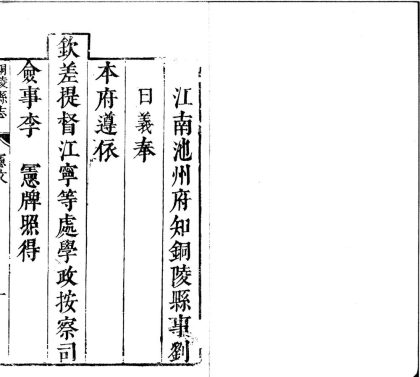 江南池州府知銅陵縣事劉
日義奉
本府遵依
欽差提督江寧等處學政按察司
僉事李 憲牌照得
銅陵縣志
憲文
一